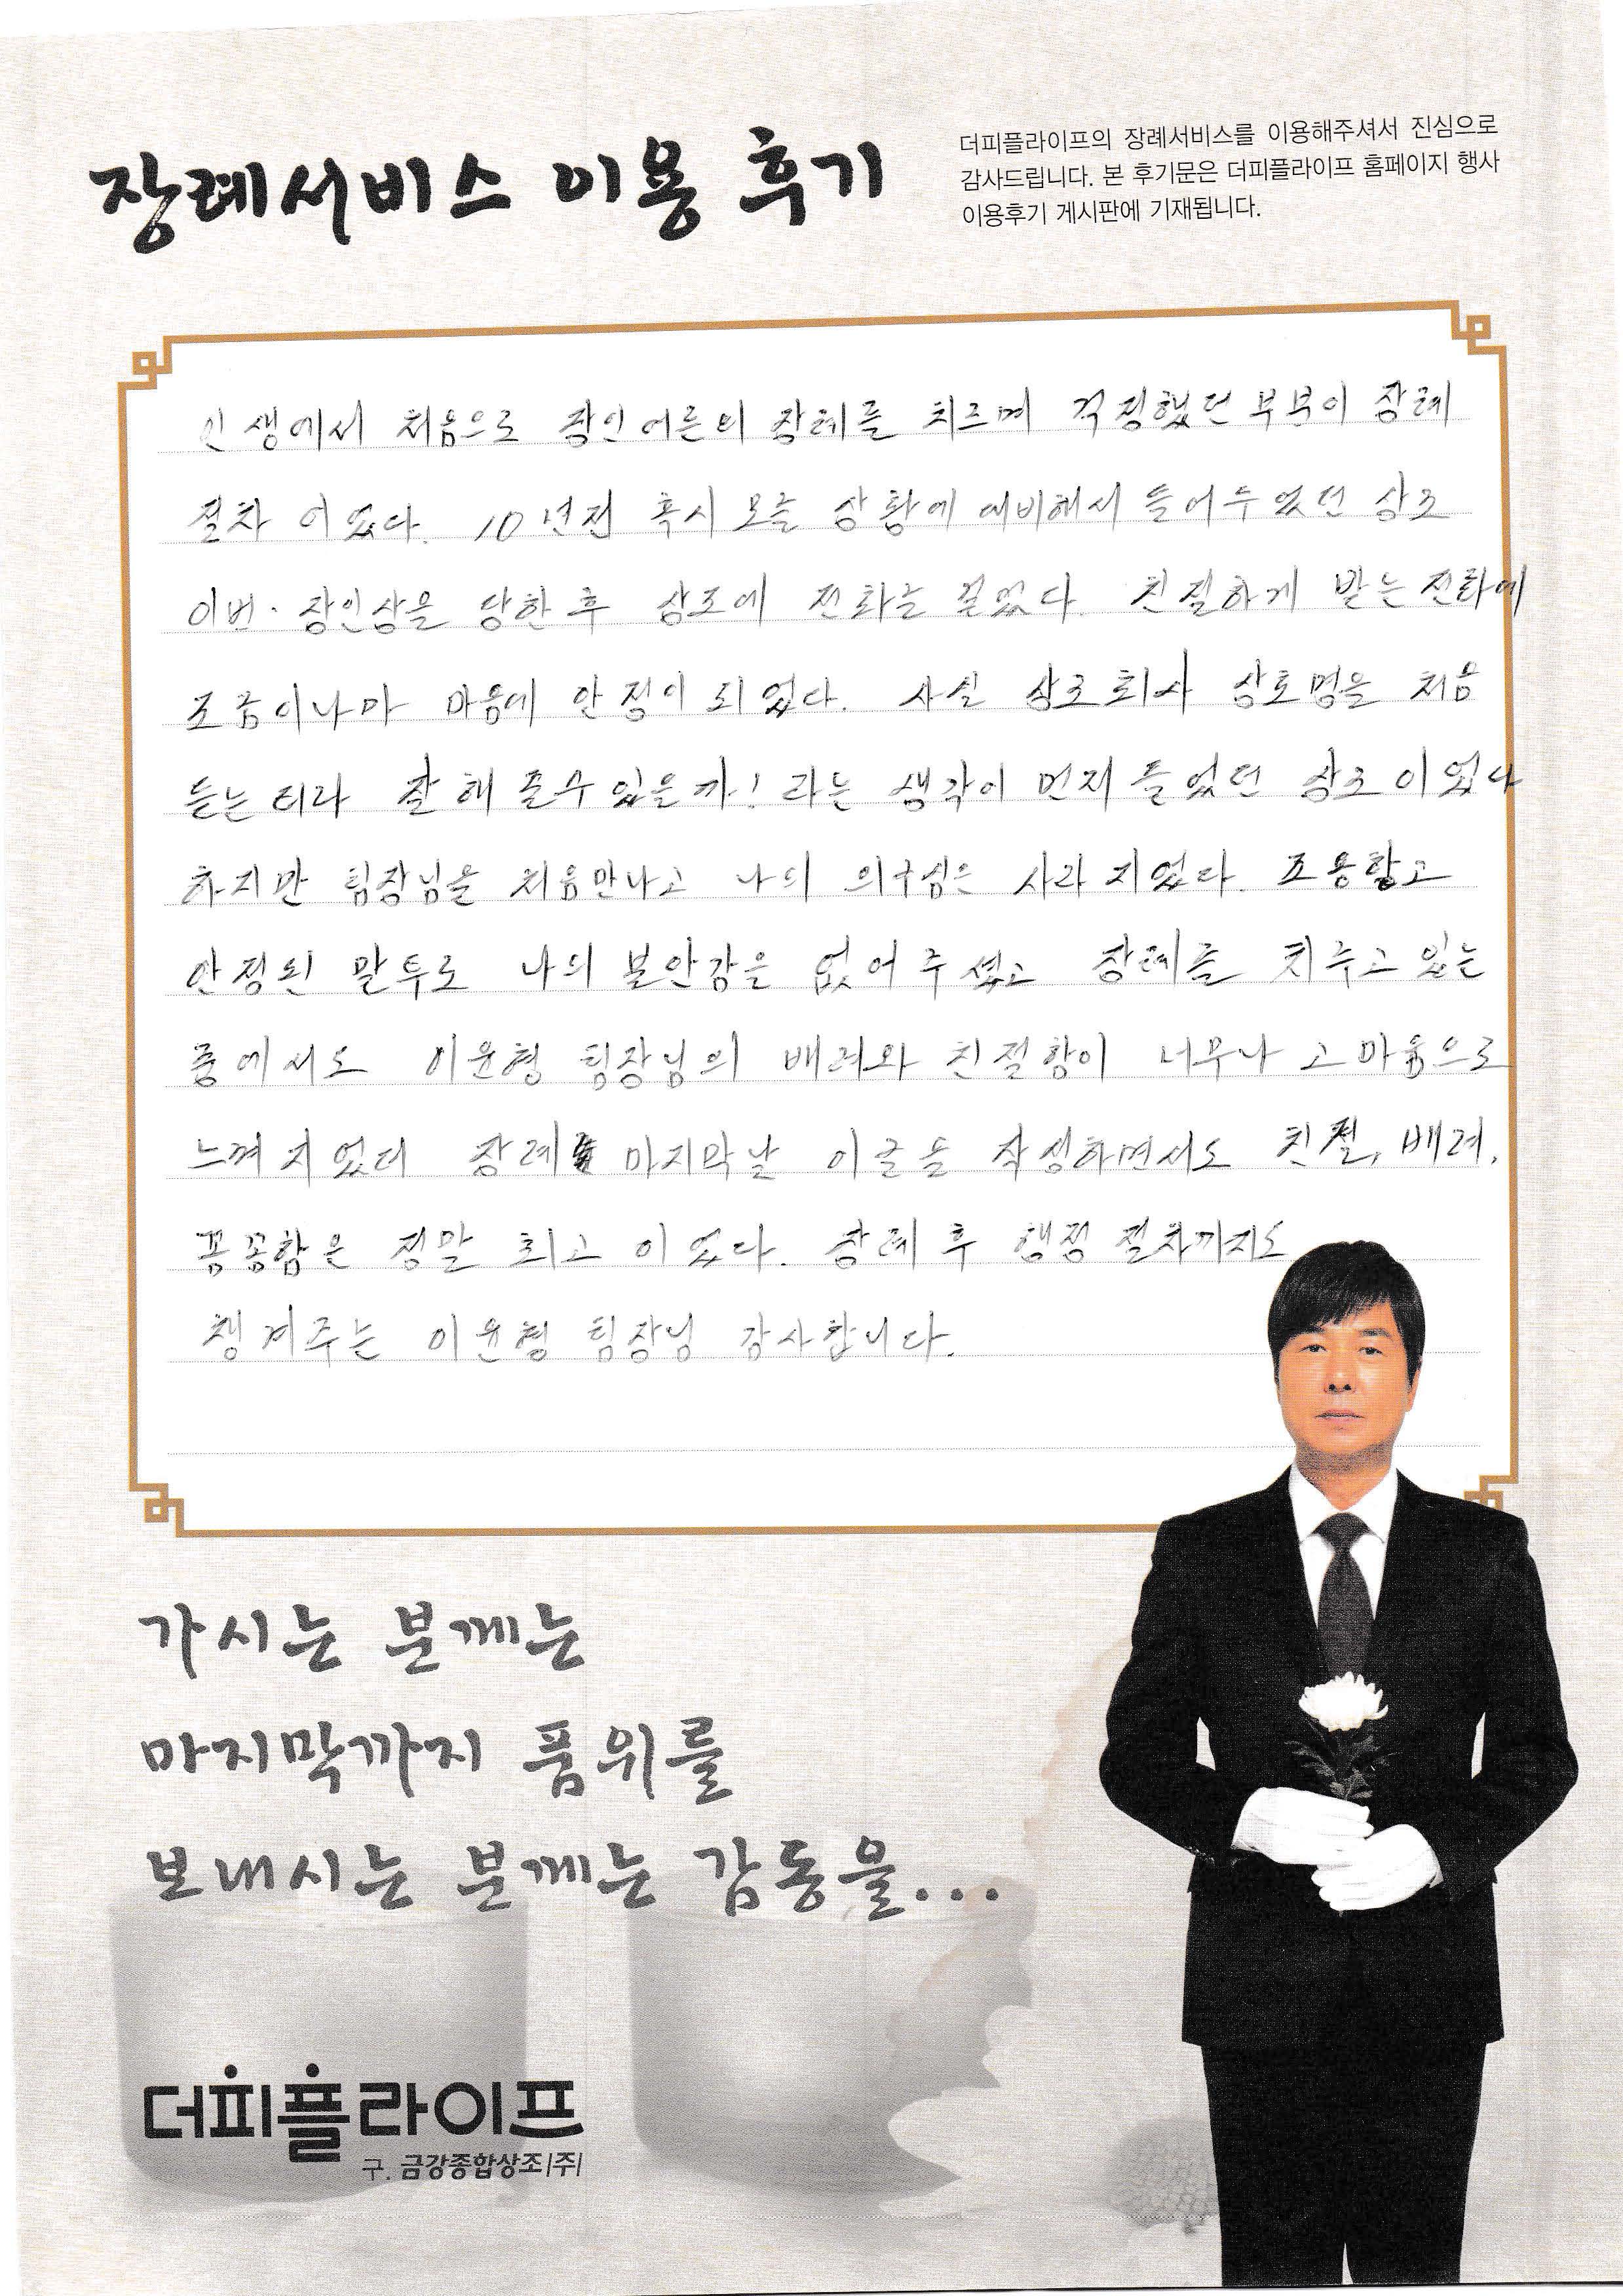 장례서비스 이용 후기
더피플라이프의 장례서비스를 이용해주셔서 진심으로
감사드립니다. 본 후기문은 더피플라이프 홈페이지 행사
이용후기 게시판에 기재됩니다.
인생에서 처음으로 장인어른의 장례를 치르며 걱정했던 부분이 장례
절차 이었다. 10년전 혹시 모를 상황에 대비해서 들어두었던 상조
이번. 장인상을 당한 후 상조에 전화를 걸었다. 친절하게 받는 전화에
조금이나마 마음에 안정이 되었다. 사실 상조회사 상호명을 처음
듣는터라 잘해줄수있을까! 라는 생각이 먼저 들었던 상조이었다
하지만 팀장님을 처음만나고 나의 의구심은 사라지었다. 조용하고
안정된 말투로 나의 불안감을 없어주셨고 장례를 치루고 있는
중에서도 이윤형 팀장님의 배려와 친절함이 너무나 고마움으로
느껴지었다 장례 마지막날 이글을 작성하면서도 친절, 배려,
꼼꼼함은 정말 최고 이었다. 장례 후 행정 절차까지도
챙겨주는 이윤형 팀장님 감사합니다.
가시는 분께는
마지막까지 품위를
보내시는 분께는 감동을...
더피플라이프
구. 금강종합상조|주|